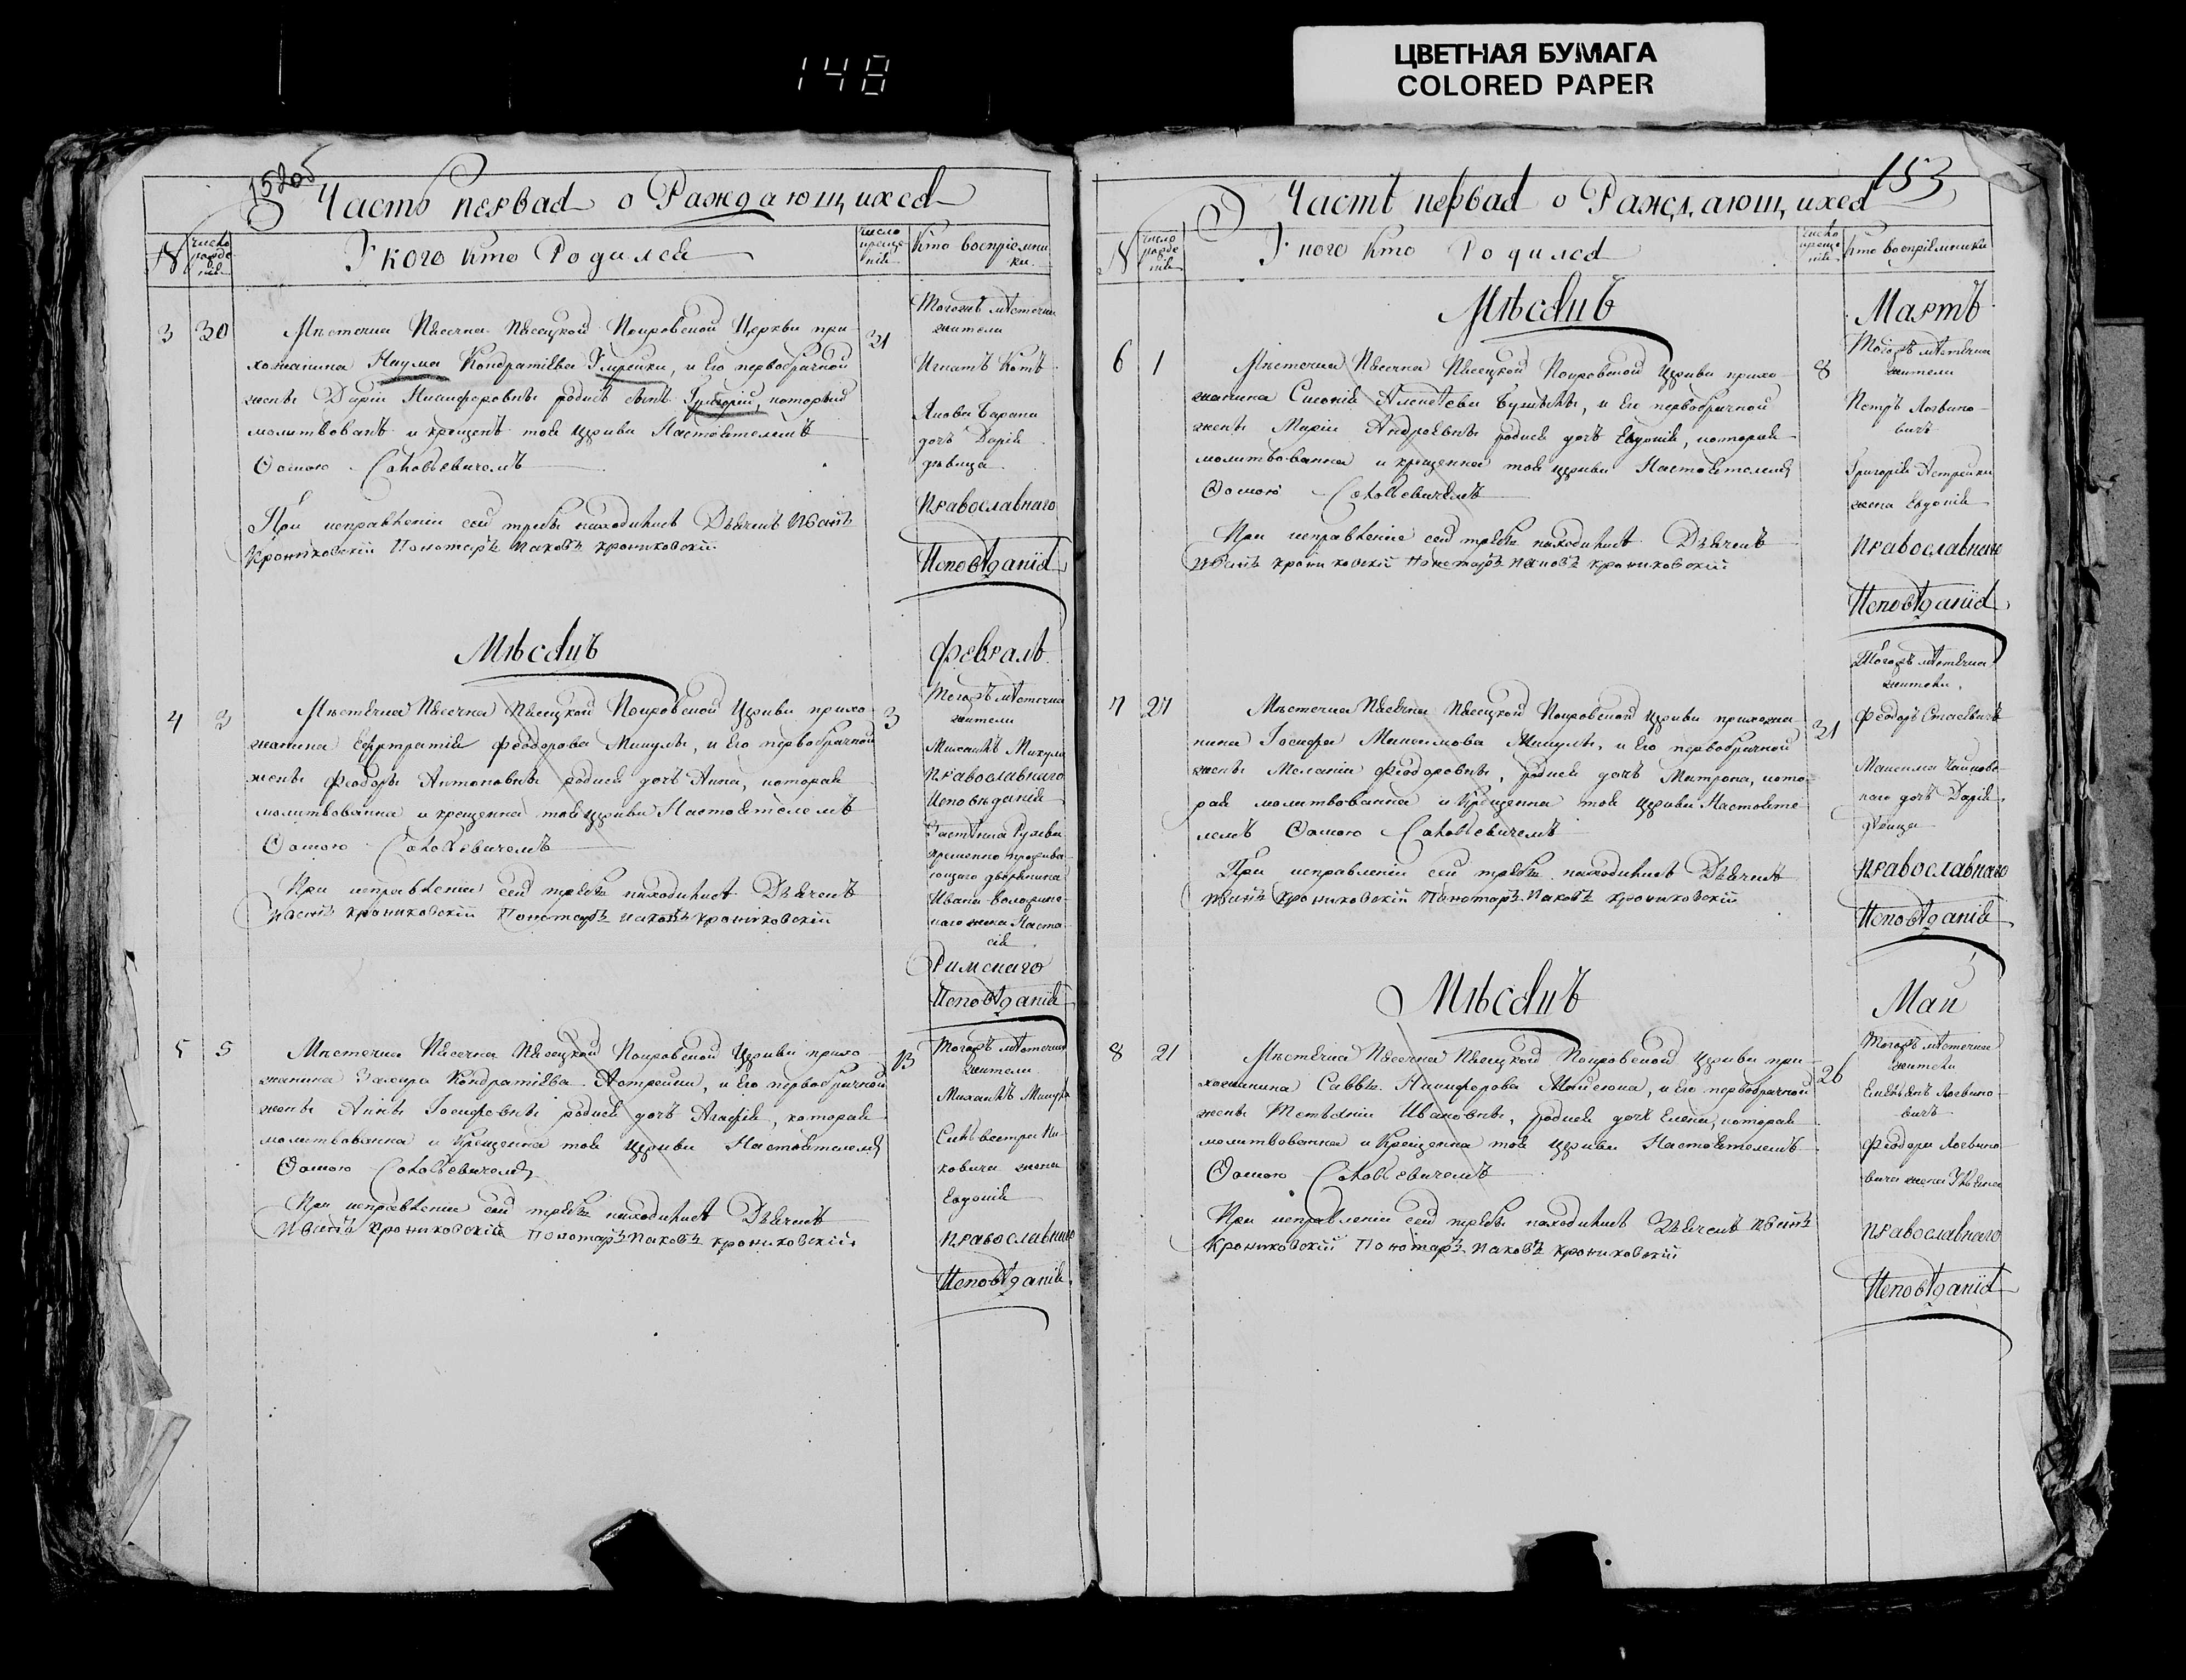 148
ЦВЕТНАЯ БУМАГА
COLORED PAPER
Часть первая о Раждающихся
№
число рожденія
У кого кто Родился
число крещенія
Кто воспріемники
3
30
31
Мѣстечка Пѣсечна Пѣсецкой Покровской Церкви при-
хожанина Наума Кондратіева, и Его первобрачной
жены Даріи Никифоровны родился сынъ Григорій, который
молитвованъ и крещенъ той Церкви Настоятелемъ
Ѳомою Соловьевичемъ
При исправленіи сей требы находились Дьячекъ Иванъ
Крониковскій Пономарь Иаковъ Крониковскій
Тогожъ мѣстечка
жители
Игнатъ Котъ
Якова Барана
дочь Дарія
дѣвица
Православнаго
Исповѣданія
Мѣсяцъ
Февраль
4
3
3
Мѣстечка Пѣсечна Пѣсецкой Покровской Церкви прихо-
жанина Феодорова Микулы, и Его первобрачной
жены Феодоры Антоновны родися дочь Анна, которая
молитвованна и крещенна той Церкви Настоятелемъ
Ѳомою Соловьевичемъ
При исправленіи сей требы находились Дьячекъ
Иванъ Крониковскій Пономарь Иаковъ Крониковскій
Тогожъ мѣстечка
жители
Михаилъ Микула
Православнаго
Исповѣданія
временно прожива-
ющаго дворянина
Ивана
жена Наста-
сія
Римскаго
Исповѣданія
5
5
13
Мѣстечка Пѣсечна Пѣсецкой Покровской Церкви прихо-
жанина Захара Кондратіева Астрейки, и Его первобрачной
жены Анны Іосифовны родися дочь Агафія, которая
молитвованна и Крещенна той Церкви Настоятелемъ
Ѳомою Соловьевичемъ
При исправленіи сей требы находились Дьячекъ
Иванъ Крониковскій Пономарь Иаковъ Крониковскій
Тогожъ мѣстечка
жители
Михаилъ Микула
Сильвестра Ни-
ковича жена
Евдокія
Православнаго
Исповѣданія
153
Часть первая о Раждающихся
№
число рожденія
У кого кто Родился
число крещенія
Кто воспріемники
Мѣсяцъ
Мартъ
6
1
8
Мѣстечка Пѣсечна Пѣсецкой Покровской Церкви прихо-
жанина Алексѣева, и Его первобрачной
жены Маріи Андреевны родися дочь Евдокія, которая
молитвованна и крещенна той церкви Настоятелемъ
Ѳомою Соловьевичемъ
При исправленіе сей требы находились Дьячекъ
Иванъ Крониковскій Пономарь Иаковъ Крониковскій
Тогожъ мѣстечка
жители
Петръ Логвино-
вичъ
Григорія Астрейки
жена Евдокія
Православнаго
Исповѣданія
7
27
31
Мѣстечка Пѣсечна Пѣсецкой Покровской Церкви прихожа-
нина Іосифа Максимова Микулы, и Его первобрачной
жены Меланіи Феодоровны, родися дочь Матрона, кото-
рая молитвованна и Крещенна той Церкви Настояте-
лемъ Ѳомою Соловьевичемъ
При исправленіи сей требы находились Дьячекъ
Иванъ Крониковскій Пономарь Иаковъ Крониковскій
Тогожъ мѣстечка
жители
Феодоръ Стасевичъ
Максима
дочь Дарія
дѣвица
Православнаго
Исповѣданія
Мѣсяцъ
Май
8
21
26
Мѣстечка Пѣсечна Пѣсецкой Покровской Церкви при-
хожанина Саввы Никифорова, и Его первобрачной
жены Ивановны, родися дочь Елена, которая
молитвованна и Крещенна той церкви Настоятелемъ
Ѳомою Соловьевичемъ
При исправленіи сей требы находились Дьячекъ Иванъ
Крониковскій Пономарь Иаковъ Крониковскій
Тогожъ мѣстечка
жители
Емельянъ Логвино-
вичъ
Феодора Логвино-
вича жена Ульяна
Православнаго
Исповѣданія